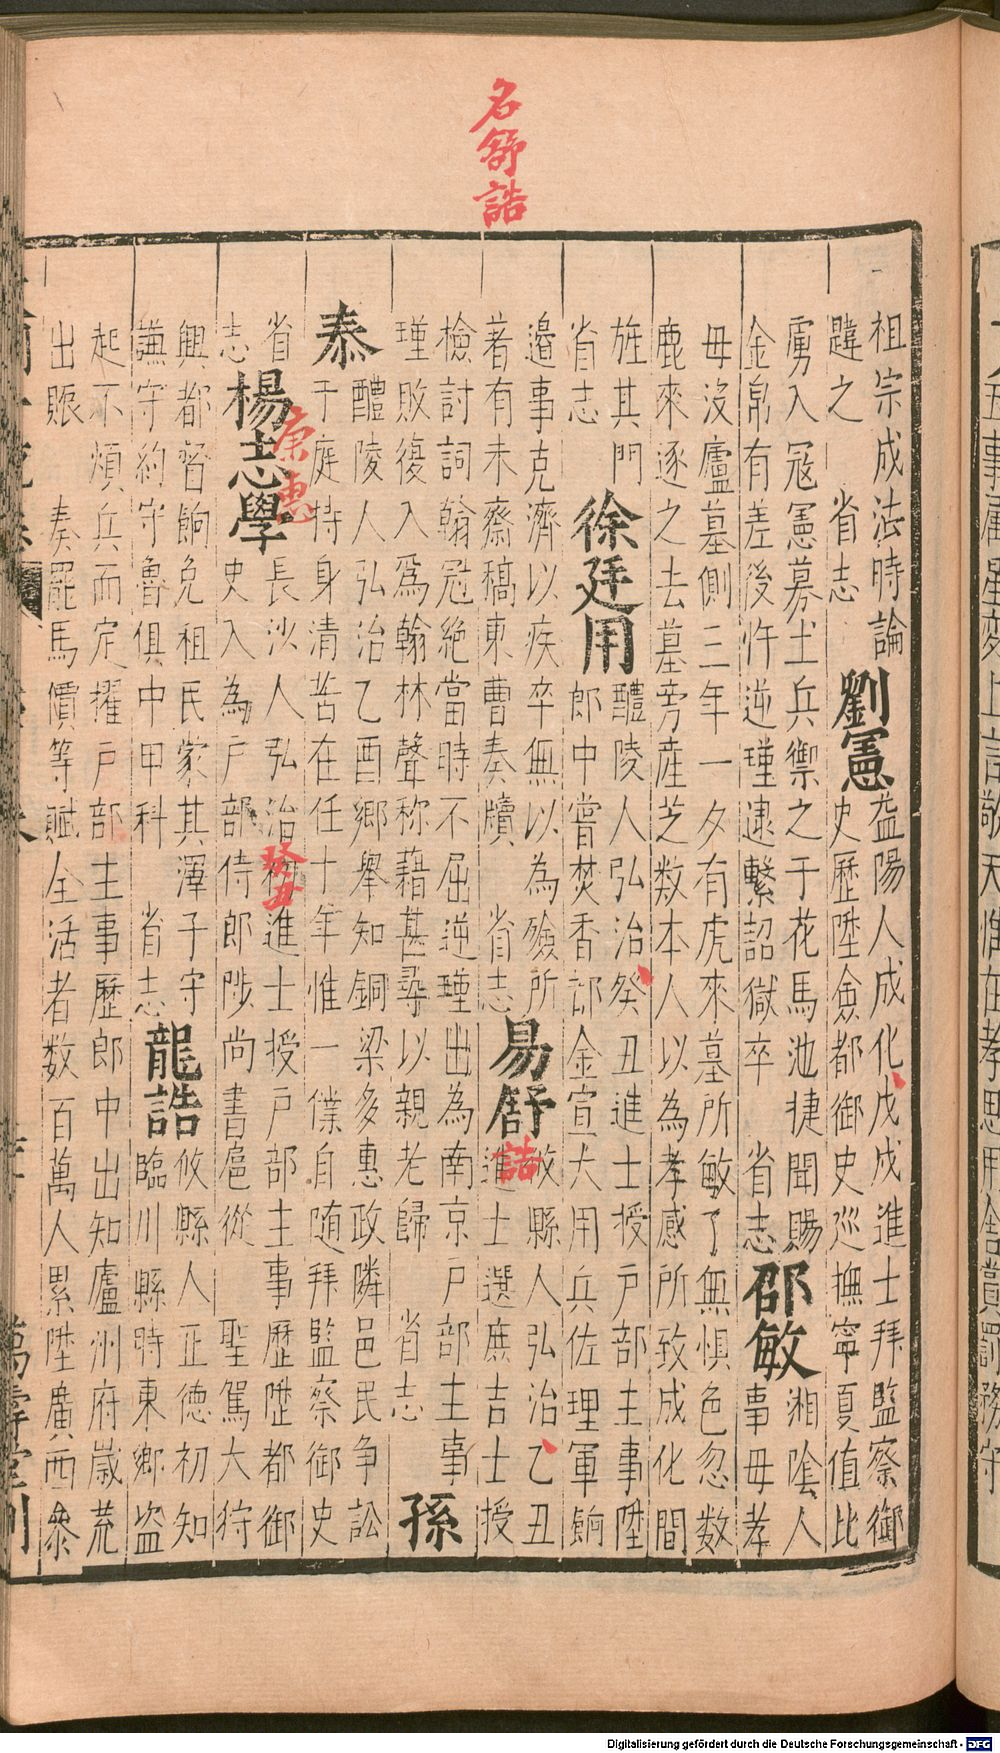 名舒誥
祖宗成法時論
韙之　省志
劉憲
益陽人成化戊戌進士拜監察御
史歷陞僉都御史巡撫寧夏值比
虜入冦憲募士兵禦之于花馬池捷聞賜
金帛有差後忤逆瑾逮繫詔獄卒　省志
邵敏
湘隂人
事母孝
母没廬墓側三年一夕有虎來墓所敏了無惧色忽数
鹿來逐之去墓旁産芝数本人以為孝感所致成化間
旌其門
省志
徐廷用
醴陵人弘治癸丑進士授户部主事陞
郎中嘗焚香部金宣大用兵佐理軍餉
邉事克濟以疾卒無以為殮所
著有未齋稿東曹奏牘　省志
易舒誥
攸縣人弘治乙丑
進士選庶吉士授
檢討詞翰冠絶當時不屈逆瑾出為南京户部主事
瑾敗復入爲翰林聲称藉甚尋以親老歸　省志
孫
泰
醴陵人弘治乙酉鄉舉知銅梁多惠政隣邑民争訟
于庭持身清苦在任十年惟一僕自随拜監察御史
省
志
楊志學
康惠
長沙人弘治癸丑進士授户部主事歷陞都御
史入為户部侍郎陟尚書扈從　聖駕大狩
興都督餉免租民蒙其澤子守
謙守約守魯俱中甲科　省志
龍誥
攸縣人正德初知
臨川縣時東鄉盗
起不煩兵而定擢户部主事歷郎中出知廬州府歲荒
出賑　奏罷馬價等賦全活者数百萬人累陞廣西叅
萬壽堂刊
Digitalisierung gefördert durch die Deutsche Forschungsgemeinschaft - DFG